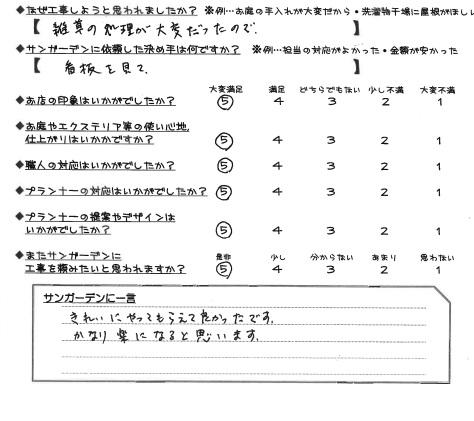 ◆なぜ工事しようと思われましたか？ ※例…お庭の手入れが大変だから・洗濯物干場に屋根がほしい
【 雑草の処理が大変だったので. 】
◆サンガーデンに依頼した決め手は何ですか？ ※例…担当の対応がよかった・金額が安かった
【 看板を見て. 】
大変満足 満足 どちらでもない 少し不満 大変不満
◆お店の印象はいかがでしたか？ ⑤ 4 3 2 1
◆お庭やエクステリア等の使い心地,
仕上がりはいかかですか？ ⑤ 4 3 2 1
◆職人の対応はいかがでしたか？ ⑤ 4 3 2 1
◆プランナーの対応はいかがでしたか？ ⑤ 4 3 2 1
◆プランナーの提案やデザインは
いかがでしたか？ ⑤ 4 3 2 1
◆またサンガーデンに 是非 少し 分からない あまり 思わない
工事を頼みたいと思われますか？ ⑤ 4 3 2 1
サンガーデンに一言
きれいにやってもらえて良かったです.
かなり楽になると思います.